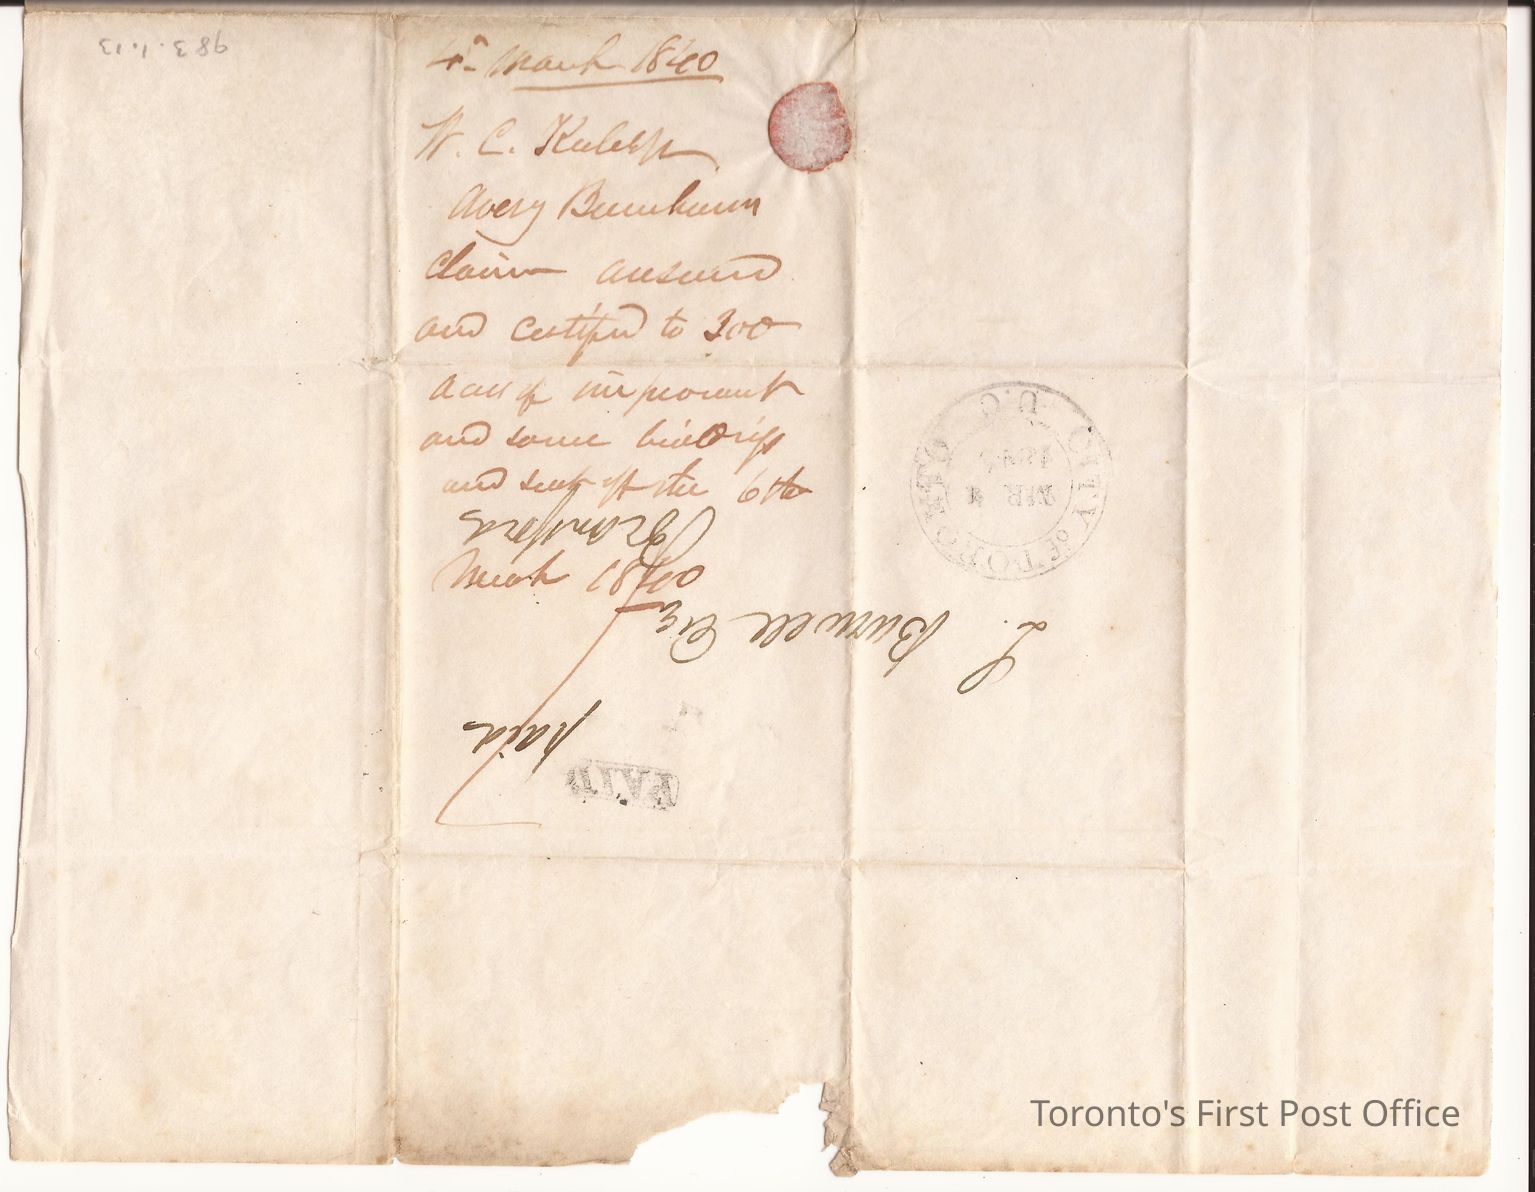 983.1.13
4th March 1840
W. C.
Avery Burnham
Claim answered
and certified to 300
acres of improvement
and some buildings
and sent off the 6th
March 1840
CITY OF TORONTO U.C.
MR 4
L. Burwell Esq
Brantford
paid
PAID
Toronto's First Post Office